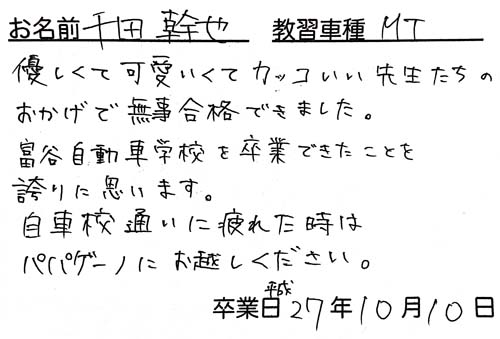 お名前 千田 幹也 教習車種 MT
優しくて可愛いくてカッコいい先生たちの
おかげで無事合格できました。
富谷自動車学校を卒業できたことを
誇りに思います。
自車校通いに疲れた時は
パパゲーノにお越しください。
卒業日 平成27年10月10日